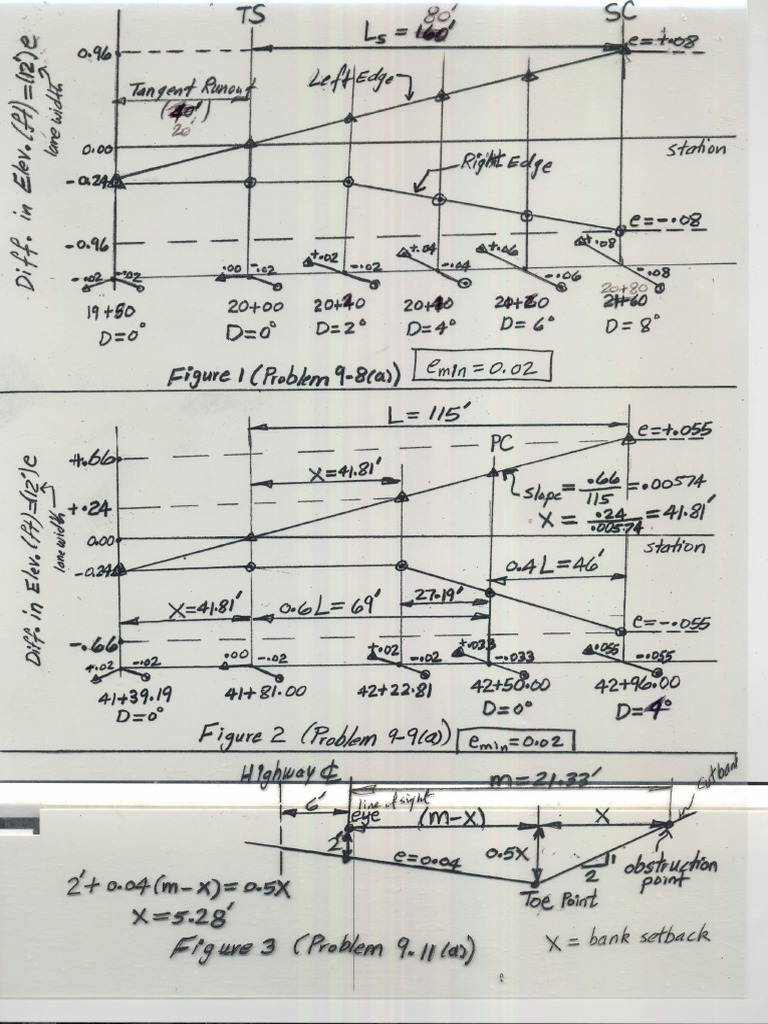 TS
80'
SC
Ls = 160'
e=+.08
0.96
Diff. in Elev.(ft)=(12')e
lane width
Tangent Runout
(40')
20'
Left Edge
0.00
station
Right Edge
-0.24
e=-.08
-0.96
-.02 -.02
.00 -.02
+.02 -.02
+.04 -.04
+.06 -.06
+.08 -.08
20+80
19+50
20+00
21+60
D=0°
D=0°
D=2°
D=4°
D=6°
D=8°
Figure 1 (Problem 9-8(a))
emin = 0.02
L = 115'
PC
e=+.055
+.66
X=41.81'
slope = .66/115 = .00574
X = .24/.00574 = 41.81'
+.24
Diff. in Elev.(ft)=(12')e
lane width
0.00
station
-0.24
0.4L=46'
X=41.81'
0.6L=69'
27.19'
e=-.055
-.66
+.02 -.02
.00 -.02
+.02 -.02
+.033 -.033
.055 -.055
41+39.19
41+81.00
42+22.81
42+50.00
42+96.00
D=0°
D=0°
D=4°
Figure 2 (Problem 9-9(a))
emin=0.02
Highway ℄
m=21.33'
cutbank
6'
line of sight
eye
(m-x)
X
2'
e=0.04
0.5X
1
2
obstruction
point
Toe Point
2'+0.04(m-x)=0.5X
X=5.28'
Figure 3 (Problem 9.11(a))
X = bank setback